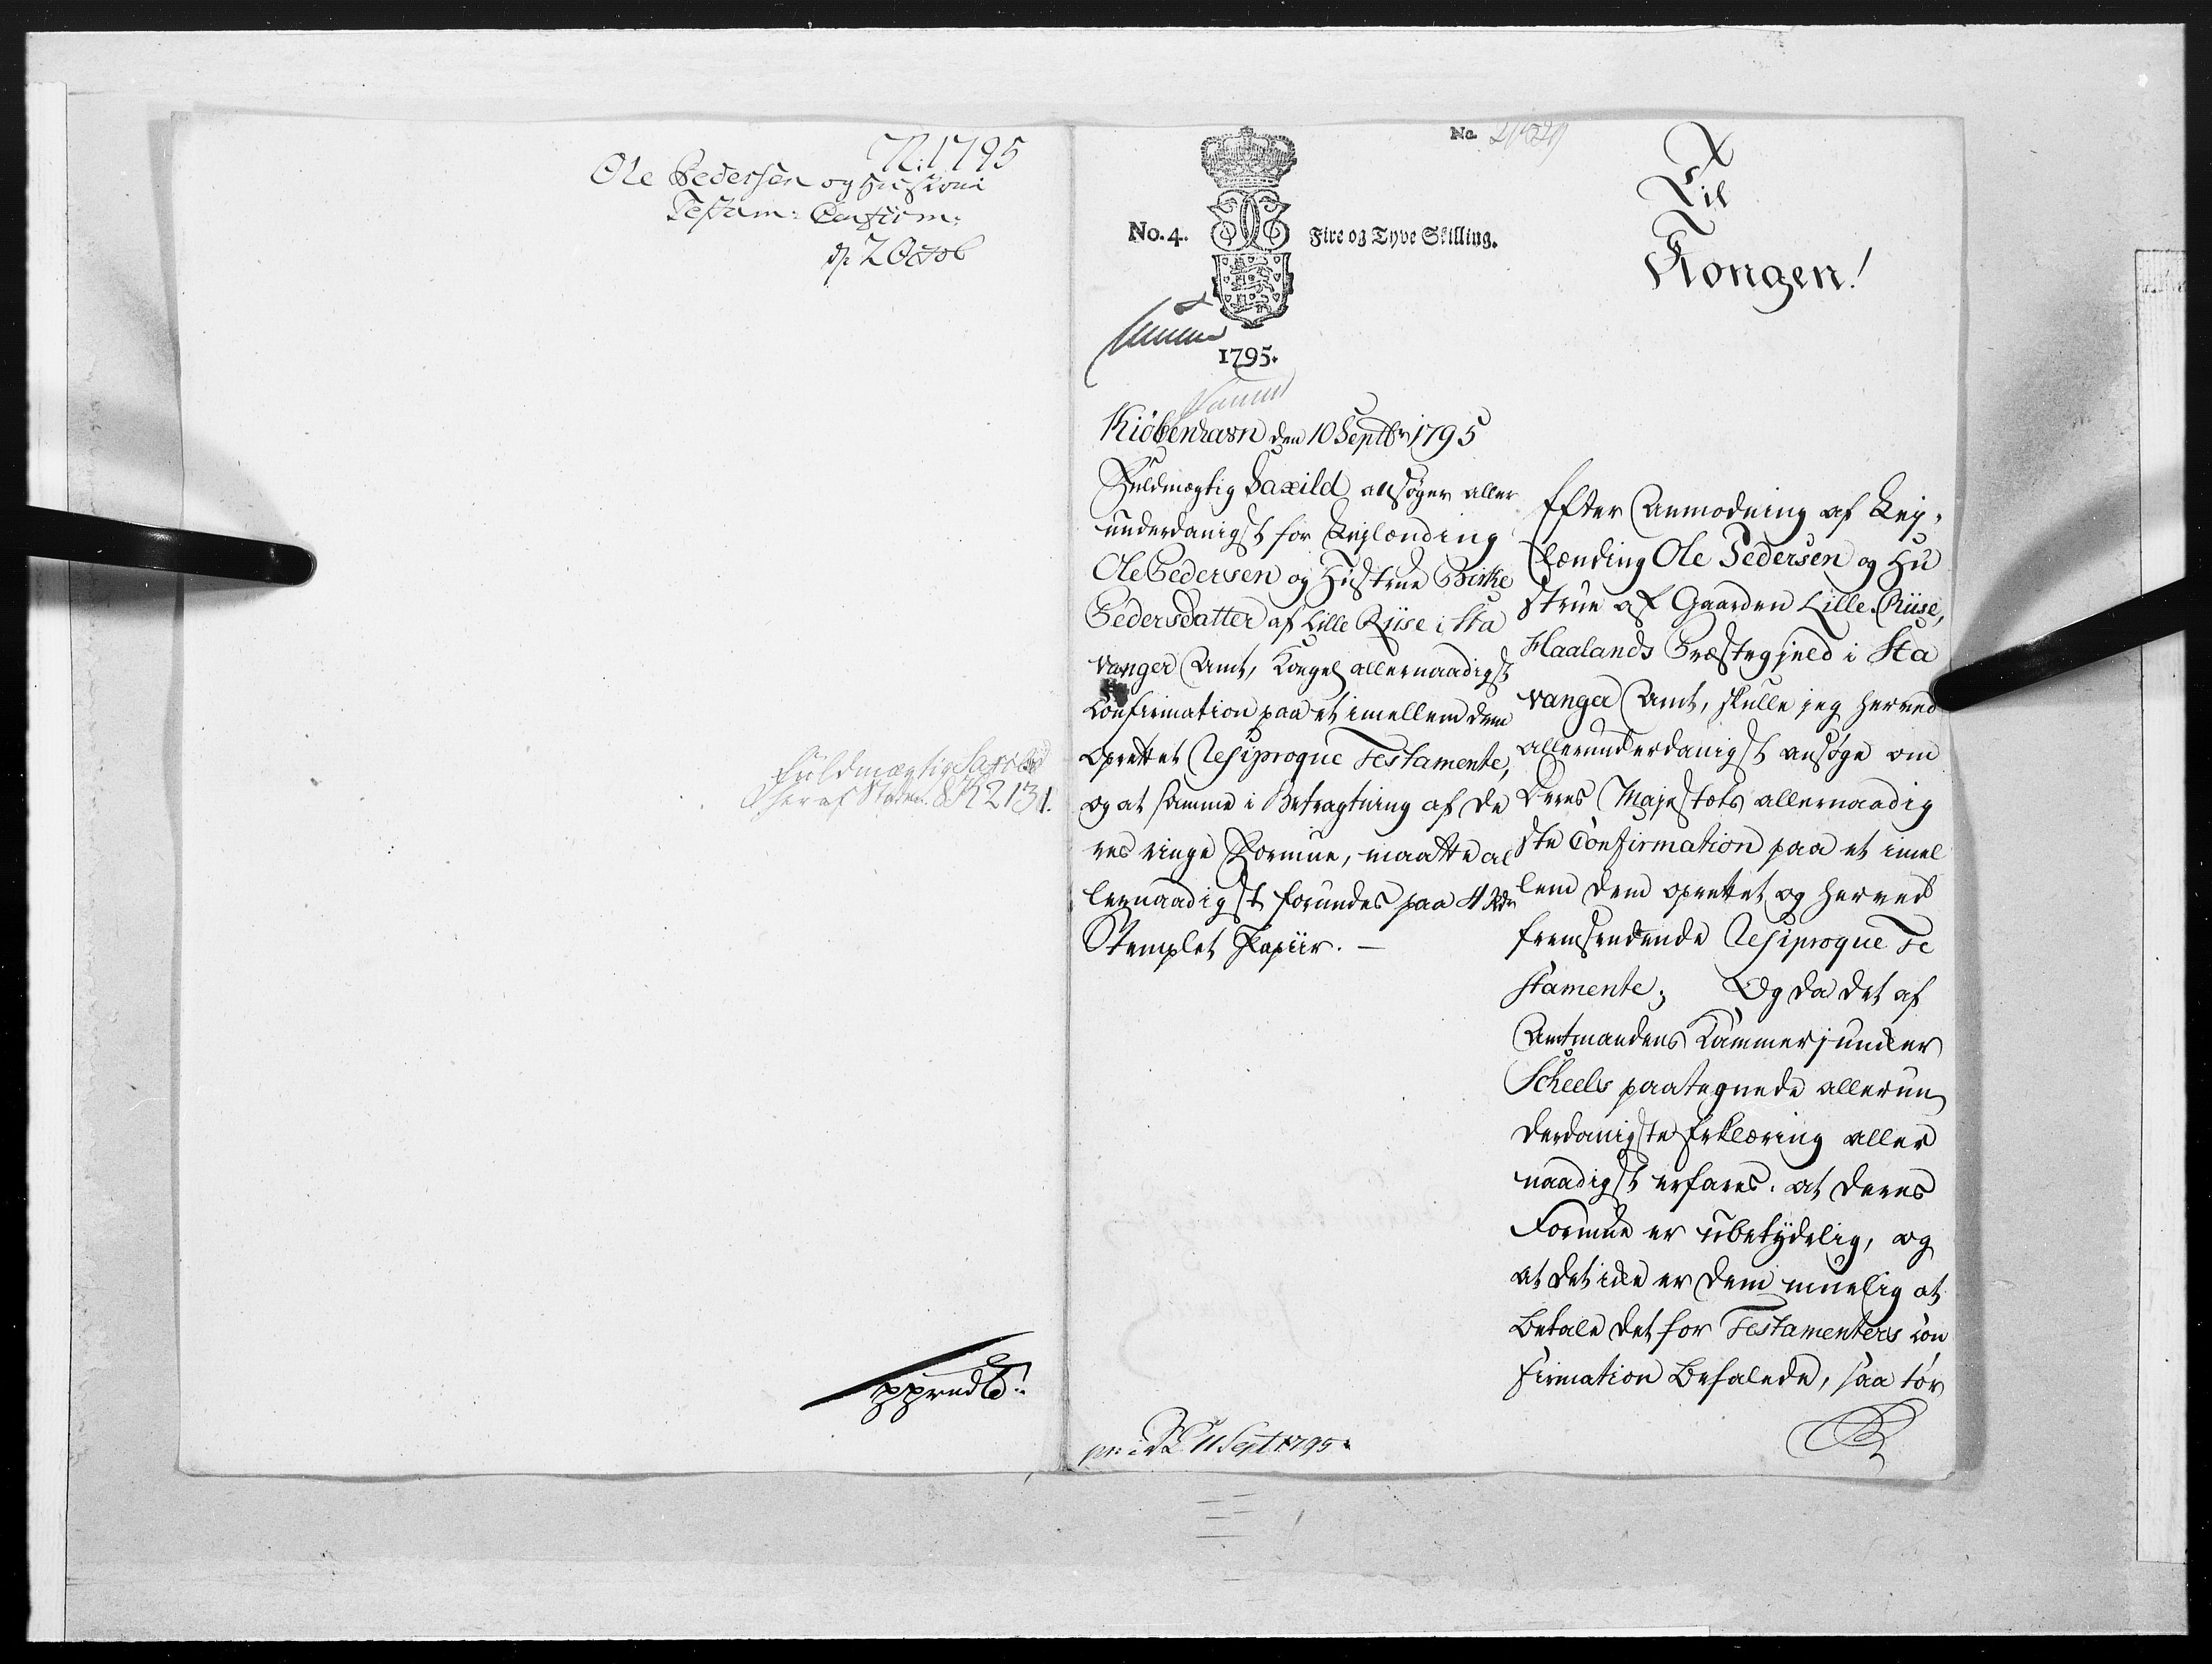 N: 1795
Ole Pedersen og Hustrue
Testam: Confirm:
d: 2 Octob
Fuldmægtig Saxild
expred:
No.
No. 4. Fire og Tyve Skilling.
1795.
Til
Kongen!
Kiöbenhavn den 10 Septbr 1795
Fuldmægtig Saxild ansøger aller
underdanigst for Lejlænding
Ole Pedersen og Hustrue Birthe
Pedersdatter af Lille Riise i Sta
vanger Amt, Kongel allernaadigst
Confirmation paa et imellem dem
oprettet Resiproque Testamente,
og at samme i Betragtning af De
res ringe Formue, maatte al
lernaadigst forundes paa 4 Rdr
Stemplet Papiir. —
pr: i D C 11 Sept 1795.
Efter Anmodning af Lej-
lænding Ole Pedersen og Hu
strue af Gaarden Lille Riise,
Haalands Præstegjeld i Sta
vanger Amt, skulle jeg herved
allerunderdanigst ansøge om
Deres Majestæts allernaadig
ste Confirmation paa et imel
lem dem oprettet og herved
fremsendende Resiproque Te
stamente; Og da det af
Amtmandens Kammerjunker
Scheels paategnede allerun
derdanigste Erklæring aller
naadigst erfares, at deres
Formue er ubetydelig, og
at det ikke er dem muelig at
betale det for Testamenters Con
firmation Befalede, saa tør